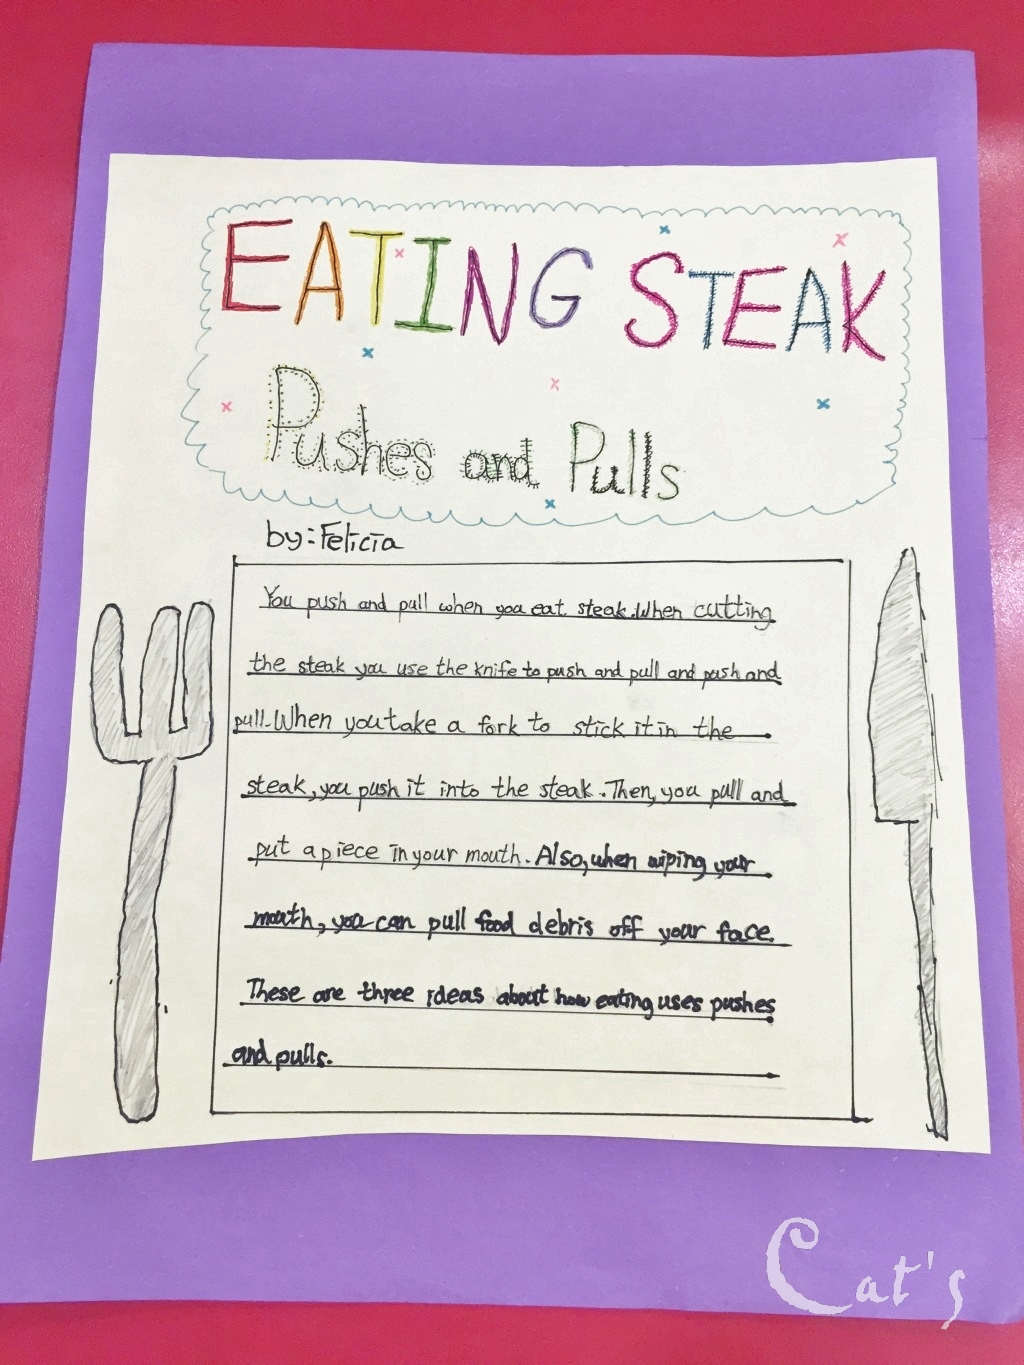 EATING STEAK
Pushes and Pulls
by: Felicia
You push and pull when you eat steak. When cutting
the steak you use the knife to push and pull and push and
pull. When you take a fork to stick it in the
steak, you push it into the steak. Then, you pull and
put a piece in your mouth. Also, when wiping your
mouth, you can pull food debris off your face.
These are three ideas about how eating uses pushes
and pulls.
Cat's